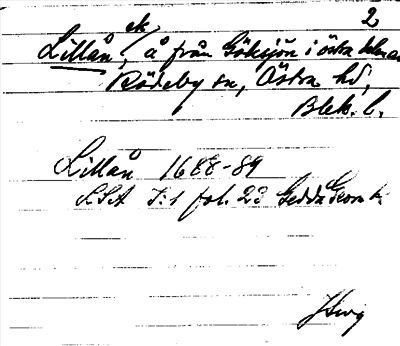 2
Lillån, ek, å från Göksjön i östra delen av
Rödeby sn, Östra hd,
Blek. l.
Lillån 1688-89
LSA I:1 fol. 23 Gedda Geom k.